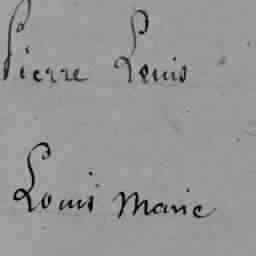 Pierre Louis
Louis Marie